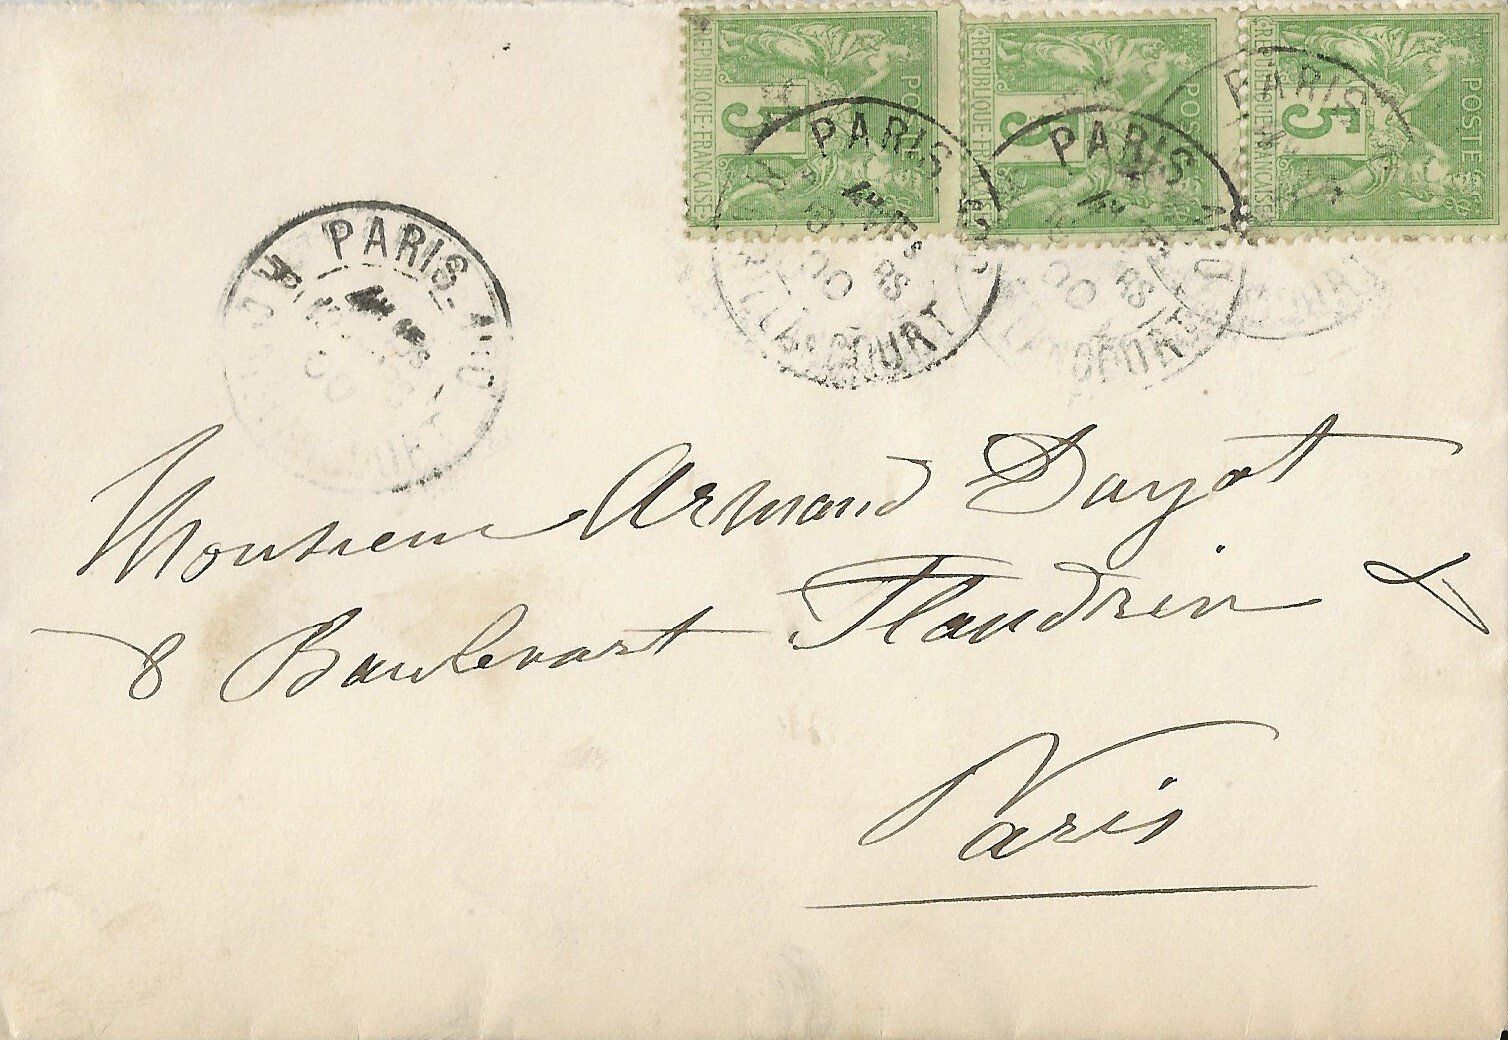 POSTE
5
RÉPUBLIQUE-FRANÇAISE
POSTE
5
RÉPUBLIQUE-FRANÇAISE
POSTE
5
RÉPUBLIQUE-FRANÇAISE
PARIS
00
COURT
PARIS
00
PARIS
PARIS
00
Monsieur Armand Dayot
8 Boulevart Flandrin
Paris